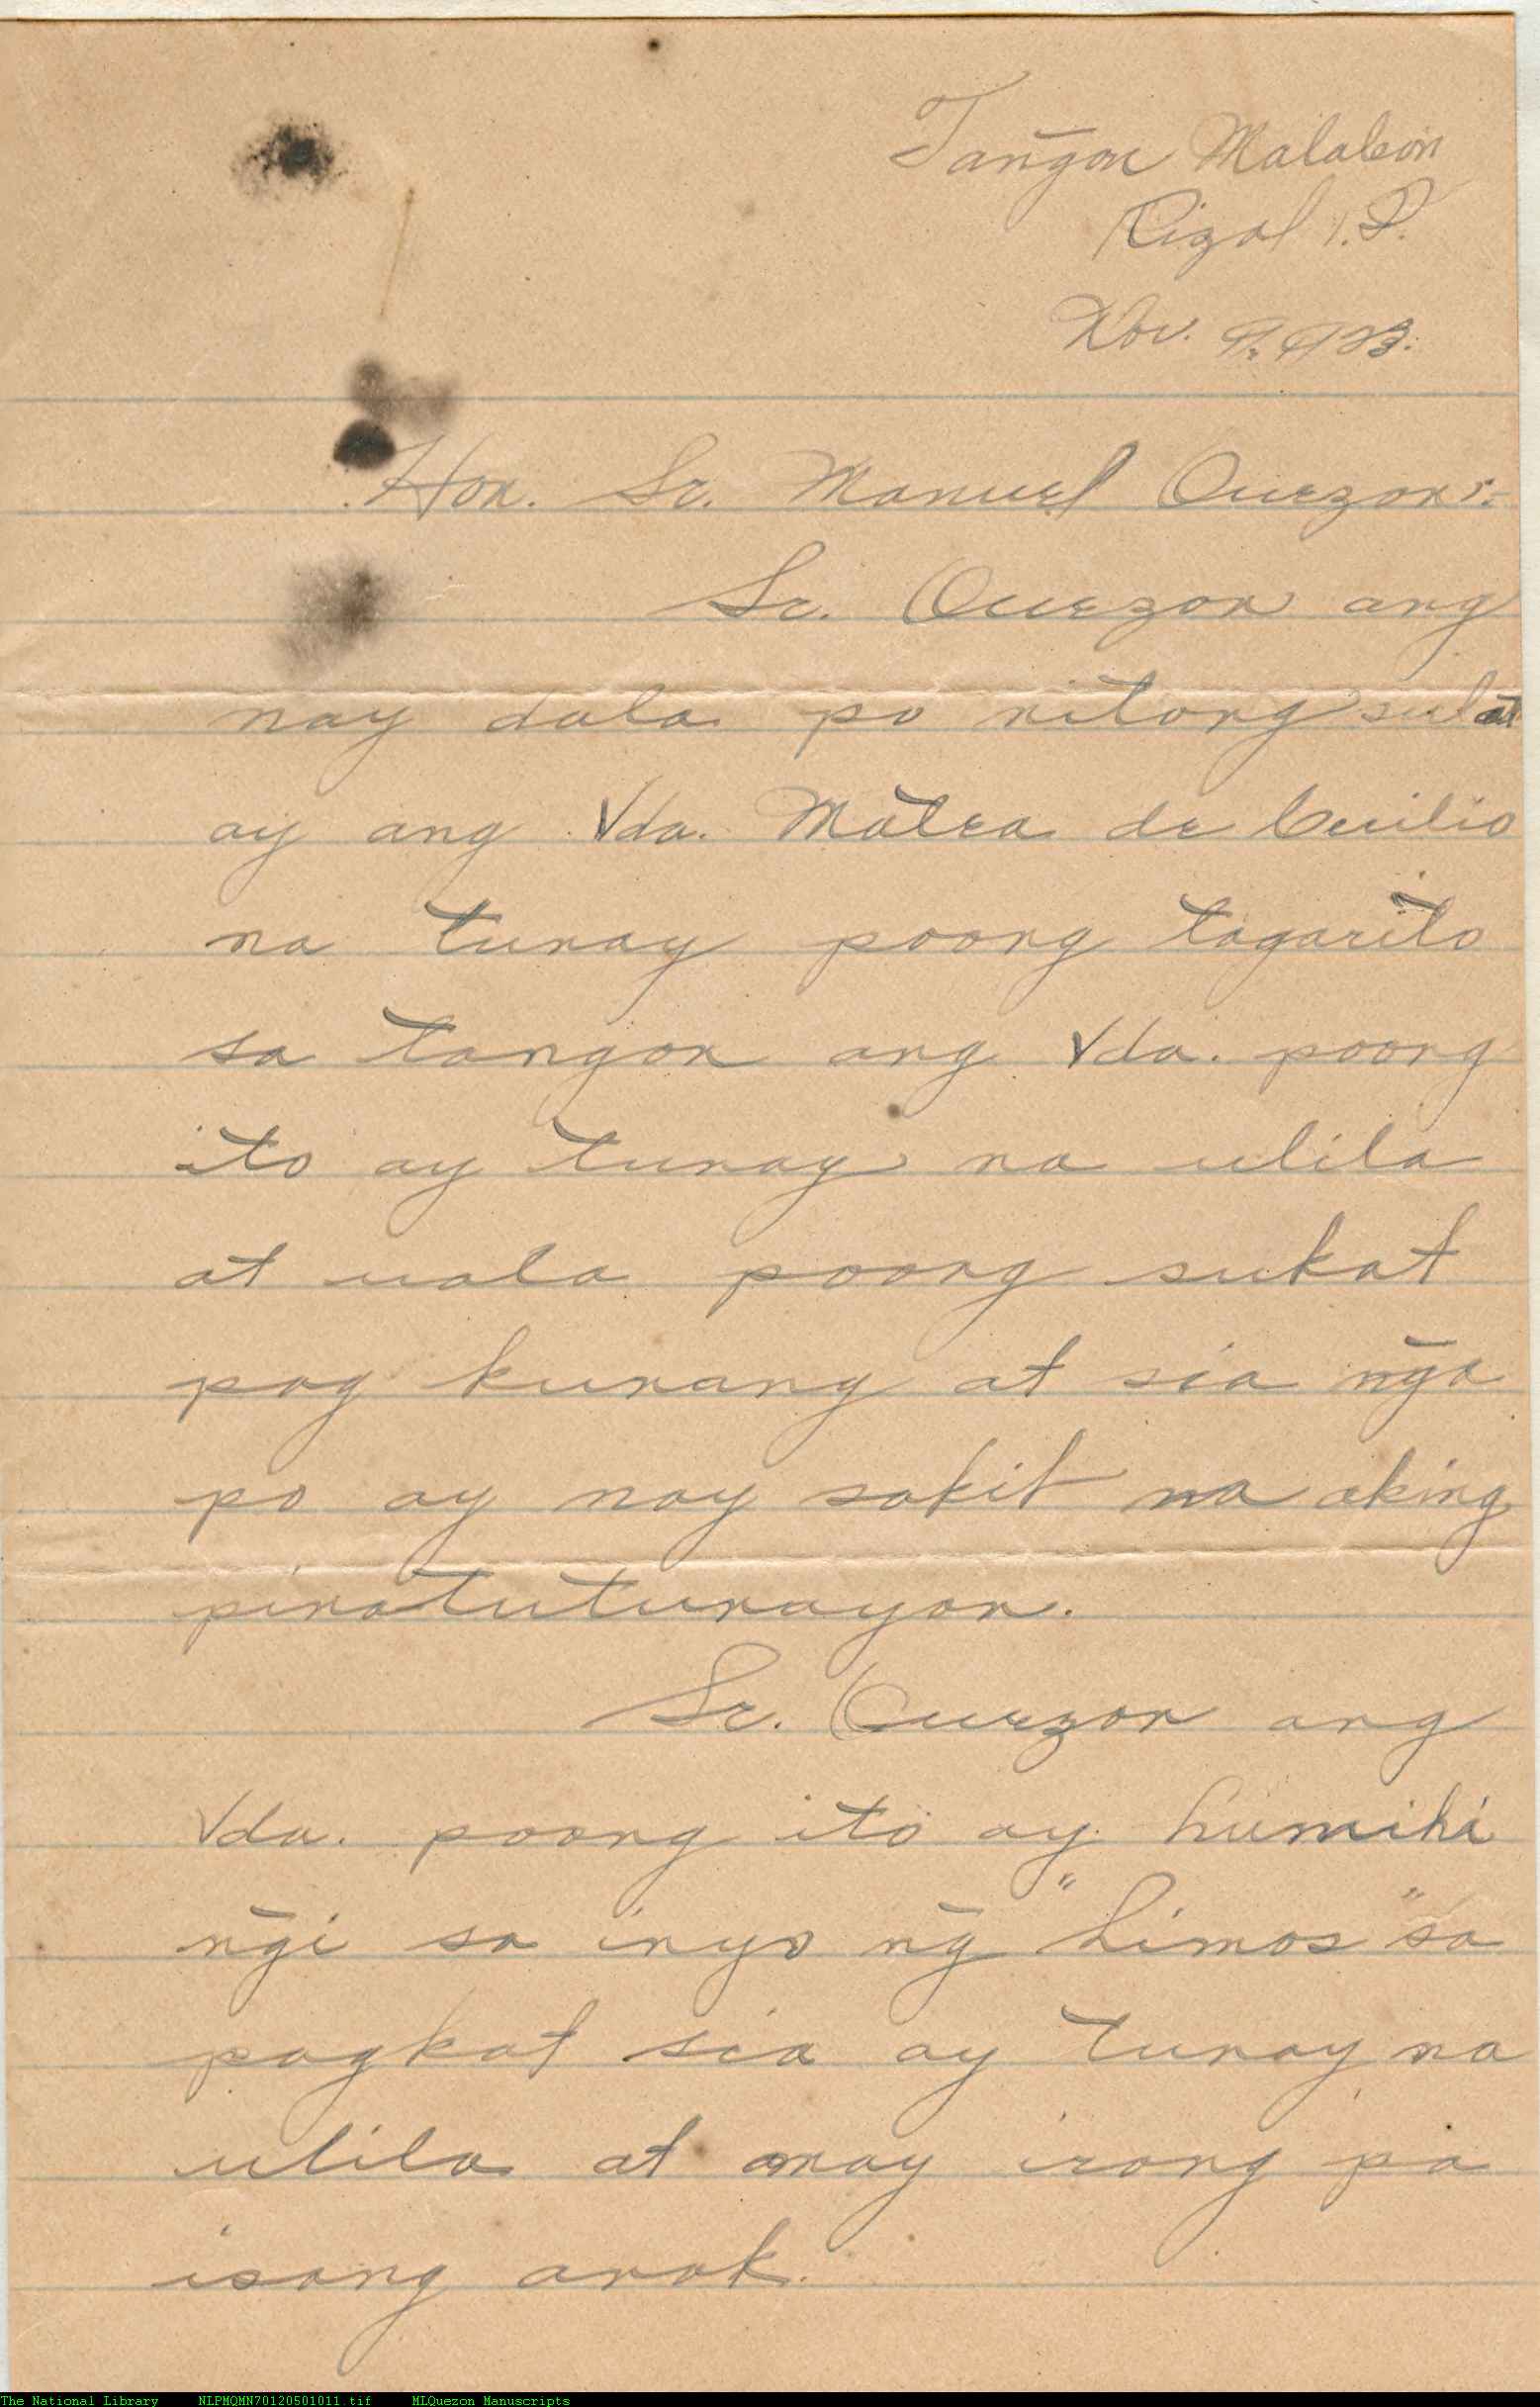 Tañgon Malabon
Rizal I. P.
Nov. 9. 923.
Hon. Sr. Manuel Quezon:-
Sr. Quezon ang
nay dala po nitong sulat
ay ang Vda. Matea de
na tunay poong tagarito
sa tangon ang Vda. poong
ito ay tunay na ulila
at uala poong sukat
pag kunang at sia n̄ga
po ay nay sakit na aking
pinatutunayan.
Sr. Quezon ang
Vda. poong ito ay humihi
n̄gi sa inyo n̄g "limos" sa
pagkat sia ay tunay na
ulila at may irong pa
isang anak.
The National Library NLPMQMN70120501011.tif MLQuezon Manuscripts